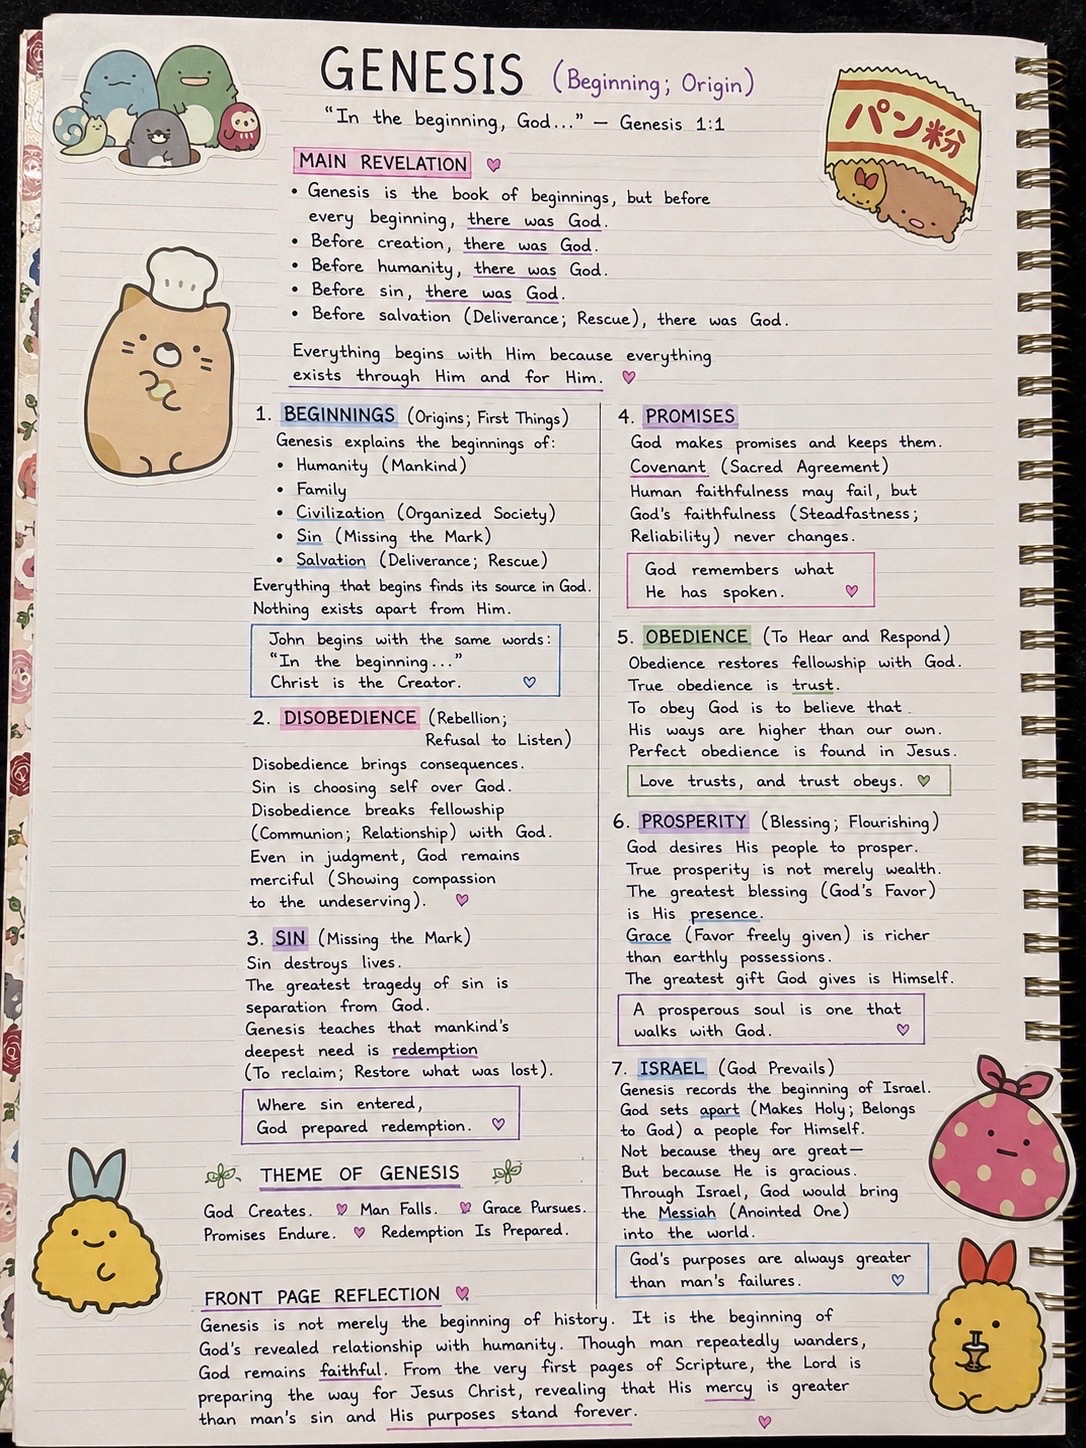 GENESIS (Beginning; Origin)
“In the beginning, God...” – Genesis 1:1
パン粉
MAIN REVELATION
• Genesis is the book of beginnings, but before
every beginning, there was God.
• Before creation, there was God.
• Before humanity, there was God.
• Before sin, there was God.
• Before salvation (Deliverance; Rescue), there was God.
Everything begins with Him because everything
exists through Him and for Him.
1. BEGINNINGS (Origins; First Things)
Genesis explains the beginnings of:
• Humanity (Mankind)
• Family
• Civilization (Organized Society)
• Sin (Missing the Mark)
• Salvation (Deliverance; Rescue)
Everything that begins finds its source in God.
Nothing exists apart from Him.
John begins with the same words:
“In the beginning...”
Christ is the Creator.
2. DISOBEDIENCE (Rebellion;
Refusal to Listen)
Disobedience brings consequences.
Sin is choosing self over God.
Disobedience breaks fellowship
(Communion; Relationship) with God.
Even in judgment, God remains
merciful (Showing compassion
to the undeserving).
3. SIN (Missing the Mark)
Sin destroys lives.
The greatest tragedy of sin is
separation from God.
Genesis teaches that mankind's
deepest need is redemption
(To reclaim; Restore what was lost).
Where sin entered,
God prepared redemption.
THEME OF GENESIS
God Creates. Man Falls. Grace Pursues.
Promises Endure. Redemption Is Prepared.
4. PROMISES
God makes promises and keeps them.
Covenant (Sacred Agreement)
Human faithfulness may fail, but
God's faithfulness (Steadfastness;
Reliability) never changes.
God remembers what
He has spoken.
5. OBEDIENCE (To Hear and Respond)
Obedience restores fellowship with God.
True obedience is trust.
To obey God is to believe that
His ways are higher than our own.
Perfect obedience is found in Jesus.
Love trusts, and trust obeys.
6. PROSPERITY (Blessing; Flourishing)
God desires His people to prosper.
True prosperity is not merely wealth.
The greatest blessing (God's Favor)
is His presence.
Grace (Favor freely given) is richer
than earthly possessions.
The greatest gift God gives is Himself.
A prosperous soul is one that
walks with God.
7. ISRAEL (God Prevails)
Genesis records the beginning of Israel.
God sets apart (Makes Holy; Belongs
to God) a people for Himself.
Not because they are great—
But because He is gracious.
Through Israel, God would bring
the Messiah (Anointed One)
into the world.
God's purposes are always greater
than man's failures.
FRONT PAGE REFLECTION
Genesis is not merely the beginning of history. It is the beginning of
God's revealed relationship with humanity. Though man repeatedly wanders,
God remains faithful. From the very first pages of Scripture, the Lord is
preparing the way for Jesus Christ, revealing that His mercy is greater
than man's sin and His purposes stand forever.